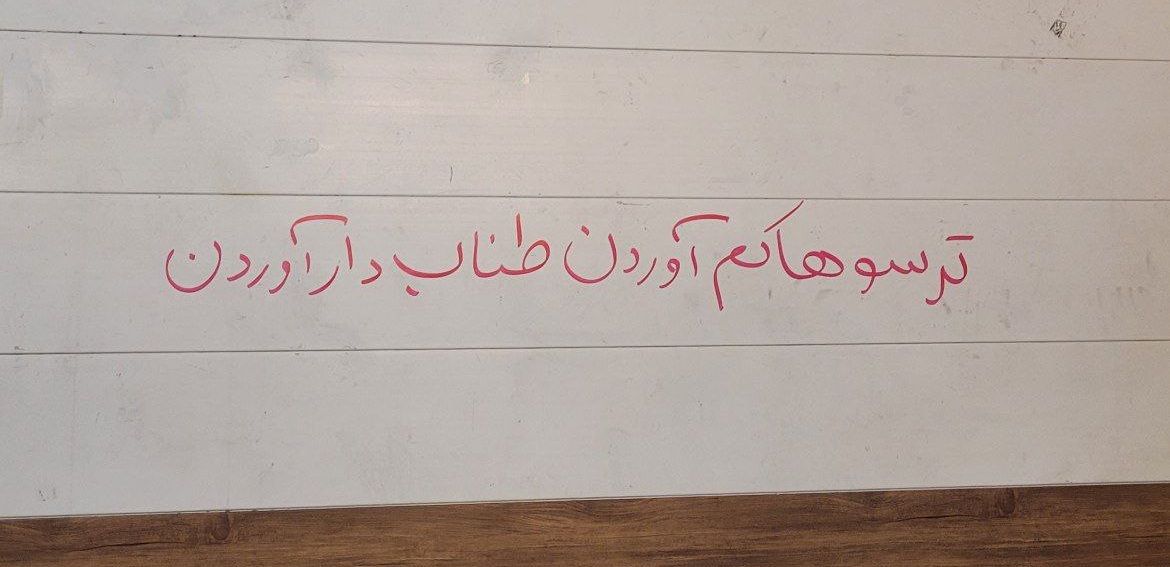 ترسوها کم آوردن طناب دار آوردن